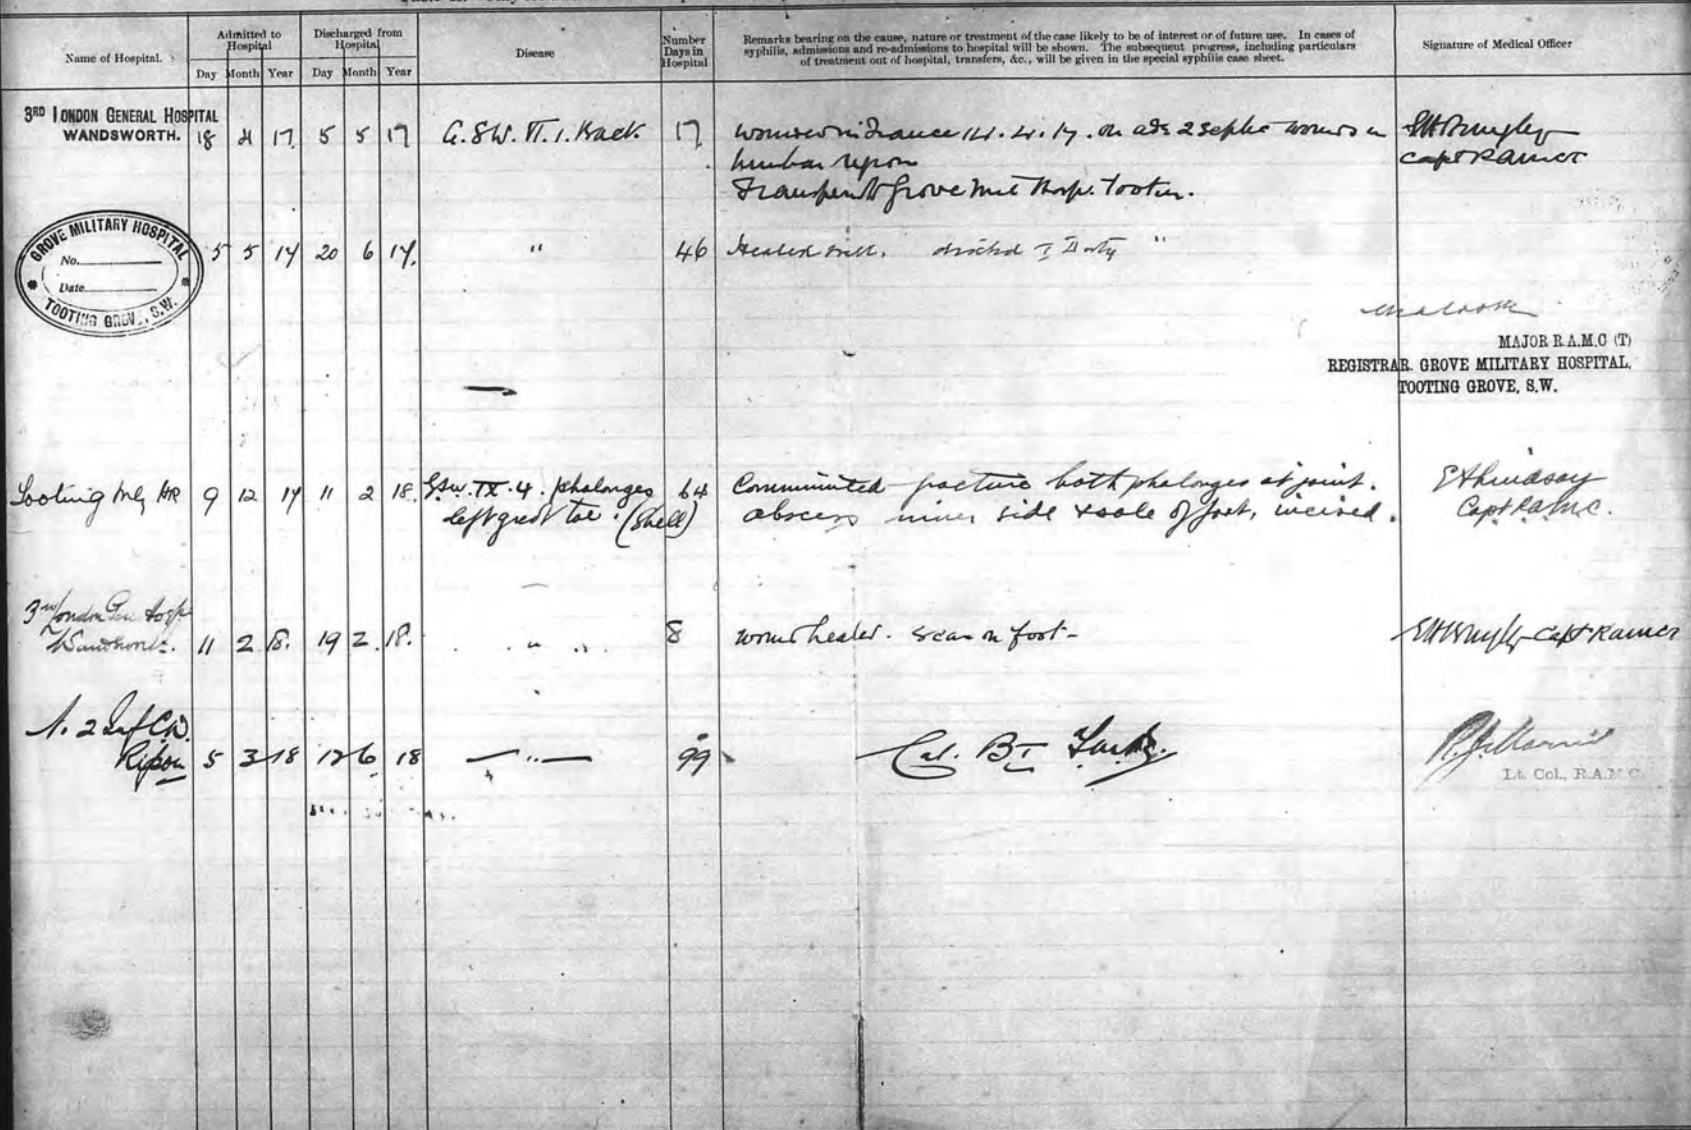 Name of Hospital.
Admitted to Hospital
Discharged from Hospital
Day Month Year Day Month Year
Disease
Number Days in Hospital
Remarks bearing on the cause, nature or treatment of the case likely to be of interest or of future use. In cases of
syphilis, admissions and re-admissions to hospital will be shown. The subsequent progress, including particulars
of treatment out of hospital, transfers, &c., will be given in the special syphilis case sheet.
Signature of Medical Officer
3RD LONDON GENERAL HOSPITAL
WANDSWORTH. 18 4 17 5 5 17 G.S.W. VI. 1. Back. 17 Wounded in France 14.4.17. on adm 2 septic wounds in
lumbar region
Capt RAMCT
Grove Mil Hosp. Tooting.
GROVE MILITARY HOSPITAL
No.
Date
TOOTING GROVE, S.W.
5 5 17 20 6 17. " 46 Healed well. Duty "
MAJOR R.A.M.C (T)
REGISTRAR. GROVE MILITARY HOSPITAL,
TOOTING GROVE, S.W.
Tooting Mly 9 12 17 11 2 18. G.S.W. IX. 4. phalanges 64 Comminuted fracture both phalanges at joint.
left great toe. (Shell) abscess inner side & sole of foot, incised.
E A Lindsay
Capt RAMC.
3rd London Gen Hosp
Wandsworth. 11 2 18. 19 2 18. " 8 wound healed. scar on foot -
Capt RAMCT
Ripon 5 3 18 12 6 18 " 99
Lt. Col., R.A.M.C.